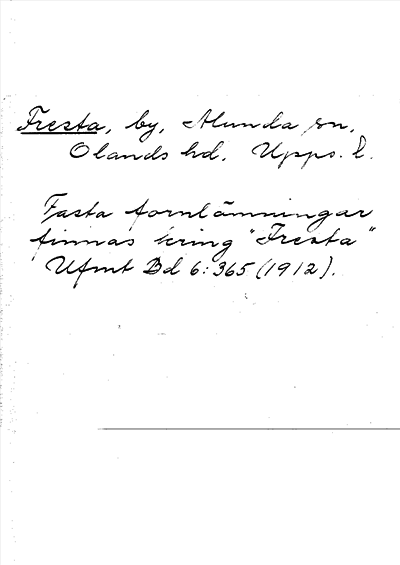 Fresta, by, Alunda sn,
Olands hd, Upps. l.
Fasta fornlämningar
finnas kring "Fresta"
Ufmt Bd 6:365 (1912).